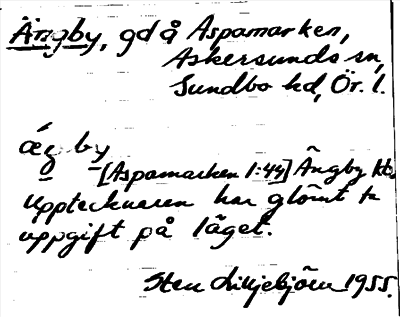 Ängby, gd å Aspamarken,
Askersunds sn,
Sundbo hd, Ör. l.
ǽg by
[Aspamarken 1:44] Ängby
Upptecknaren har glömt
uppgift på läget.
Sten Liljebjörn 1955.